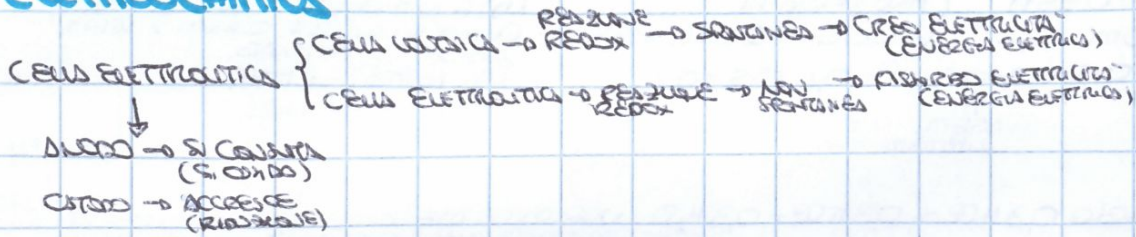 ELETTROCHIMICA
CELLA VOLTAICA → REAZIONE REDOX → SPONTANEA → CREA ELETTRICITA' (ENERGIA ELETTRICA)
CELLA ELETTROLITICA
CELLA ELETTROLITICA → REAZIONE REDOX → NON SPONTANEA → ELETTRICITA' (ENERGIA ELETTRICA)
ANODO → SI CONSUMA
(SI OSSIDA)
CATODO → ACCRESCE
(RIDUZIONE)